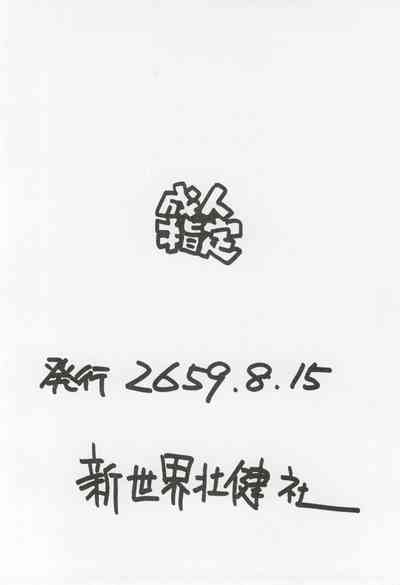 成人
指定
発行 2659.8.15
新世界壮健社